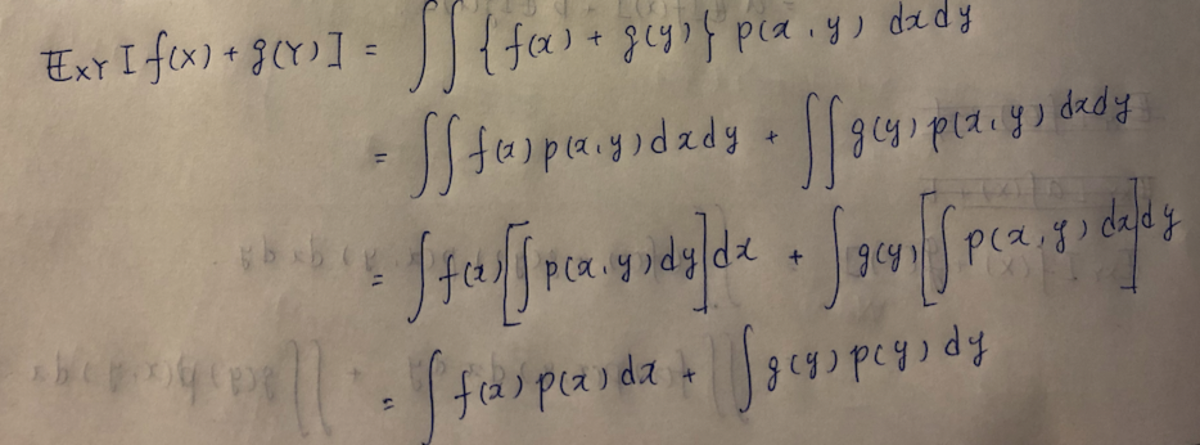 𝔼XY [f(X) + g(Y)] = ∫∫ {f(x) + g(y)} p(x, y) dx dy
= ∫∫ f(x) p(x, y) dx dy + ∫∫ g(y) p(x, y) dx dy
= ∫ f(x) [∫ p(x, y) dy] dx + ∫ g(y) [∫ p(x, y) dx] dy
= ∫ f(x) p(x) dx + ∫ g(y) p(y) dy